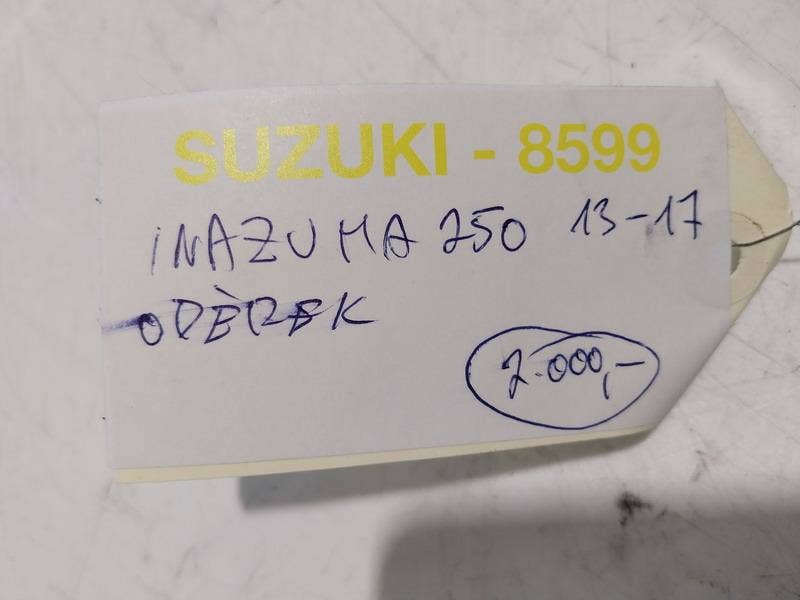 SUZUKI - 8599
INAZUMA 250 13-17
ODĚREK
2.000,-